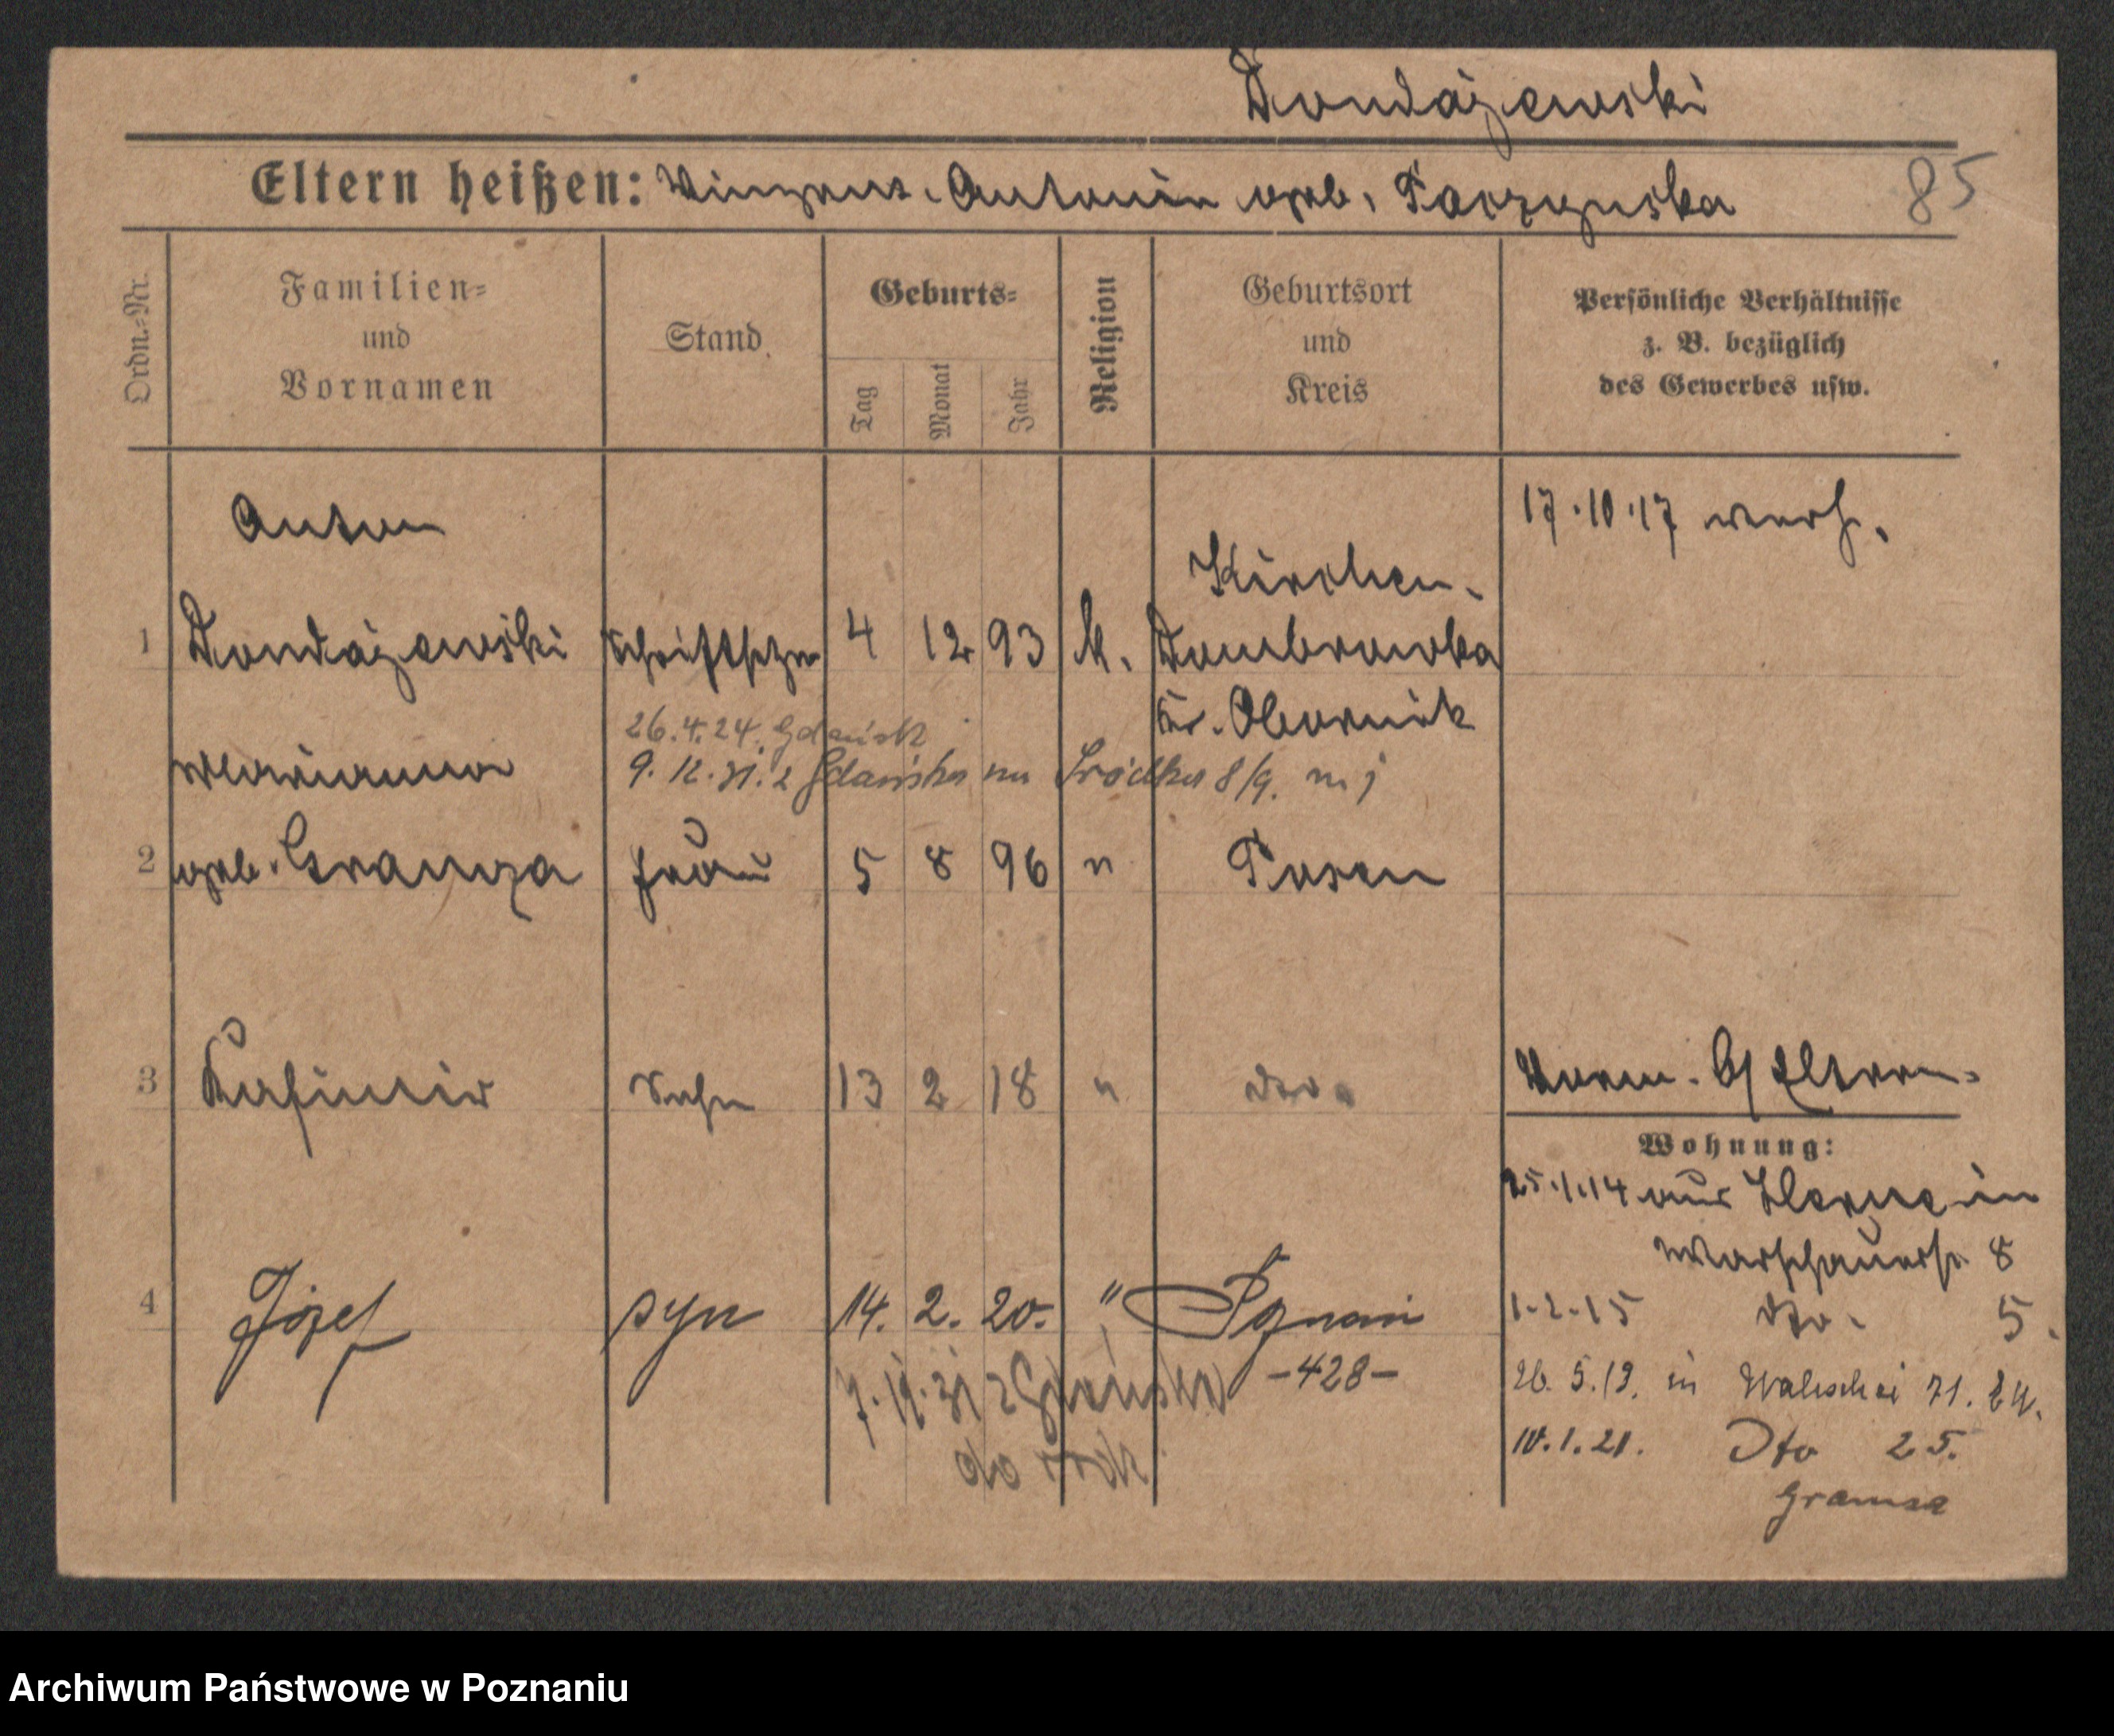 Dondajewski
Eltern heißen: Vinzent. Antonin geb. Parzynska
85
Ordn.=Nr.
Familien=
und
Vornamen
Stand
Geburts=
Tag
Monat
Jahr
Religion
Geburtsort
und
Kreis
Persönliche Verhältnisse
z. B. bezüglich
des Gewerbes usw.
Anton
17.10.17 verh.
Kirchen-
1 Dondajewski Schriftsetzer 4 12 93 k. Dombrowka
Kr. Obornik
26.4.24. Gdańsk
Marianna
9. 12. 31. z Gdańska na Śródka 8/9. m
2 geb. Gramza Frau 5 8 96 " Posen
3 Kasimir Sohn 13 2 18 " dto
Vorm. Eltern.
Wohnung:
25.1.14 aus Herne in
Warschauerstr. 8
4 Józef syn 14. 2. 20. " Poznań
1.2.15 dto. 5.
-428-
z Gdańska
do
26. 5. 19. in Wallischei 71.
10.1.21. Dto 25.
Gramza
Archiwum Państwowe w Poznaniu